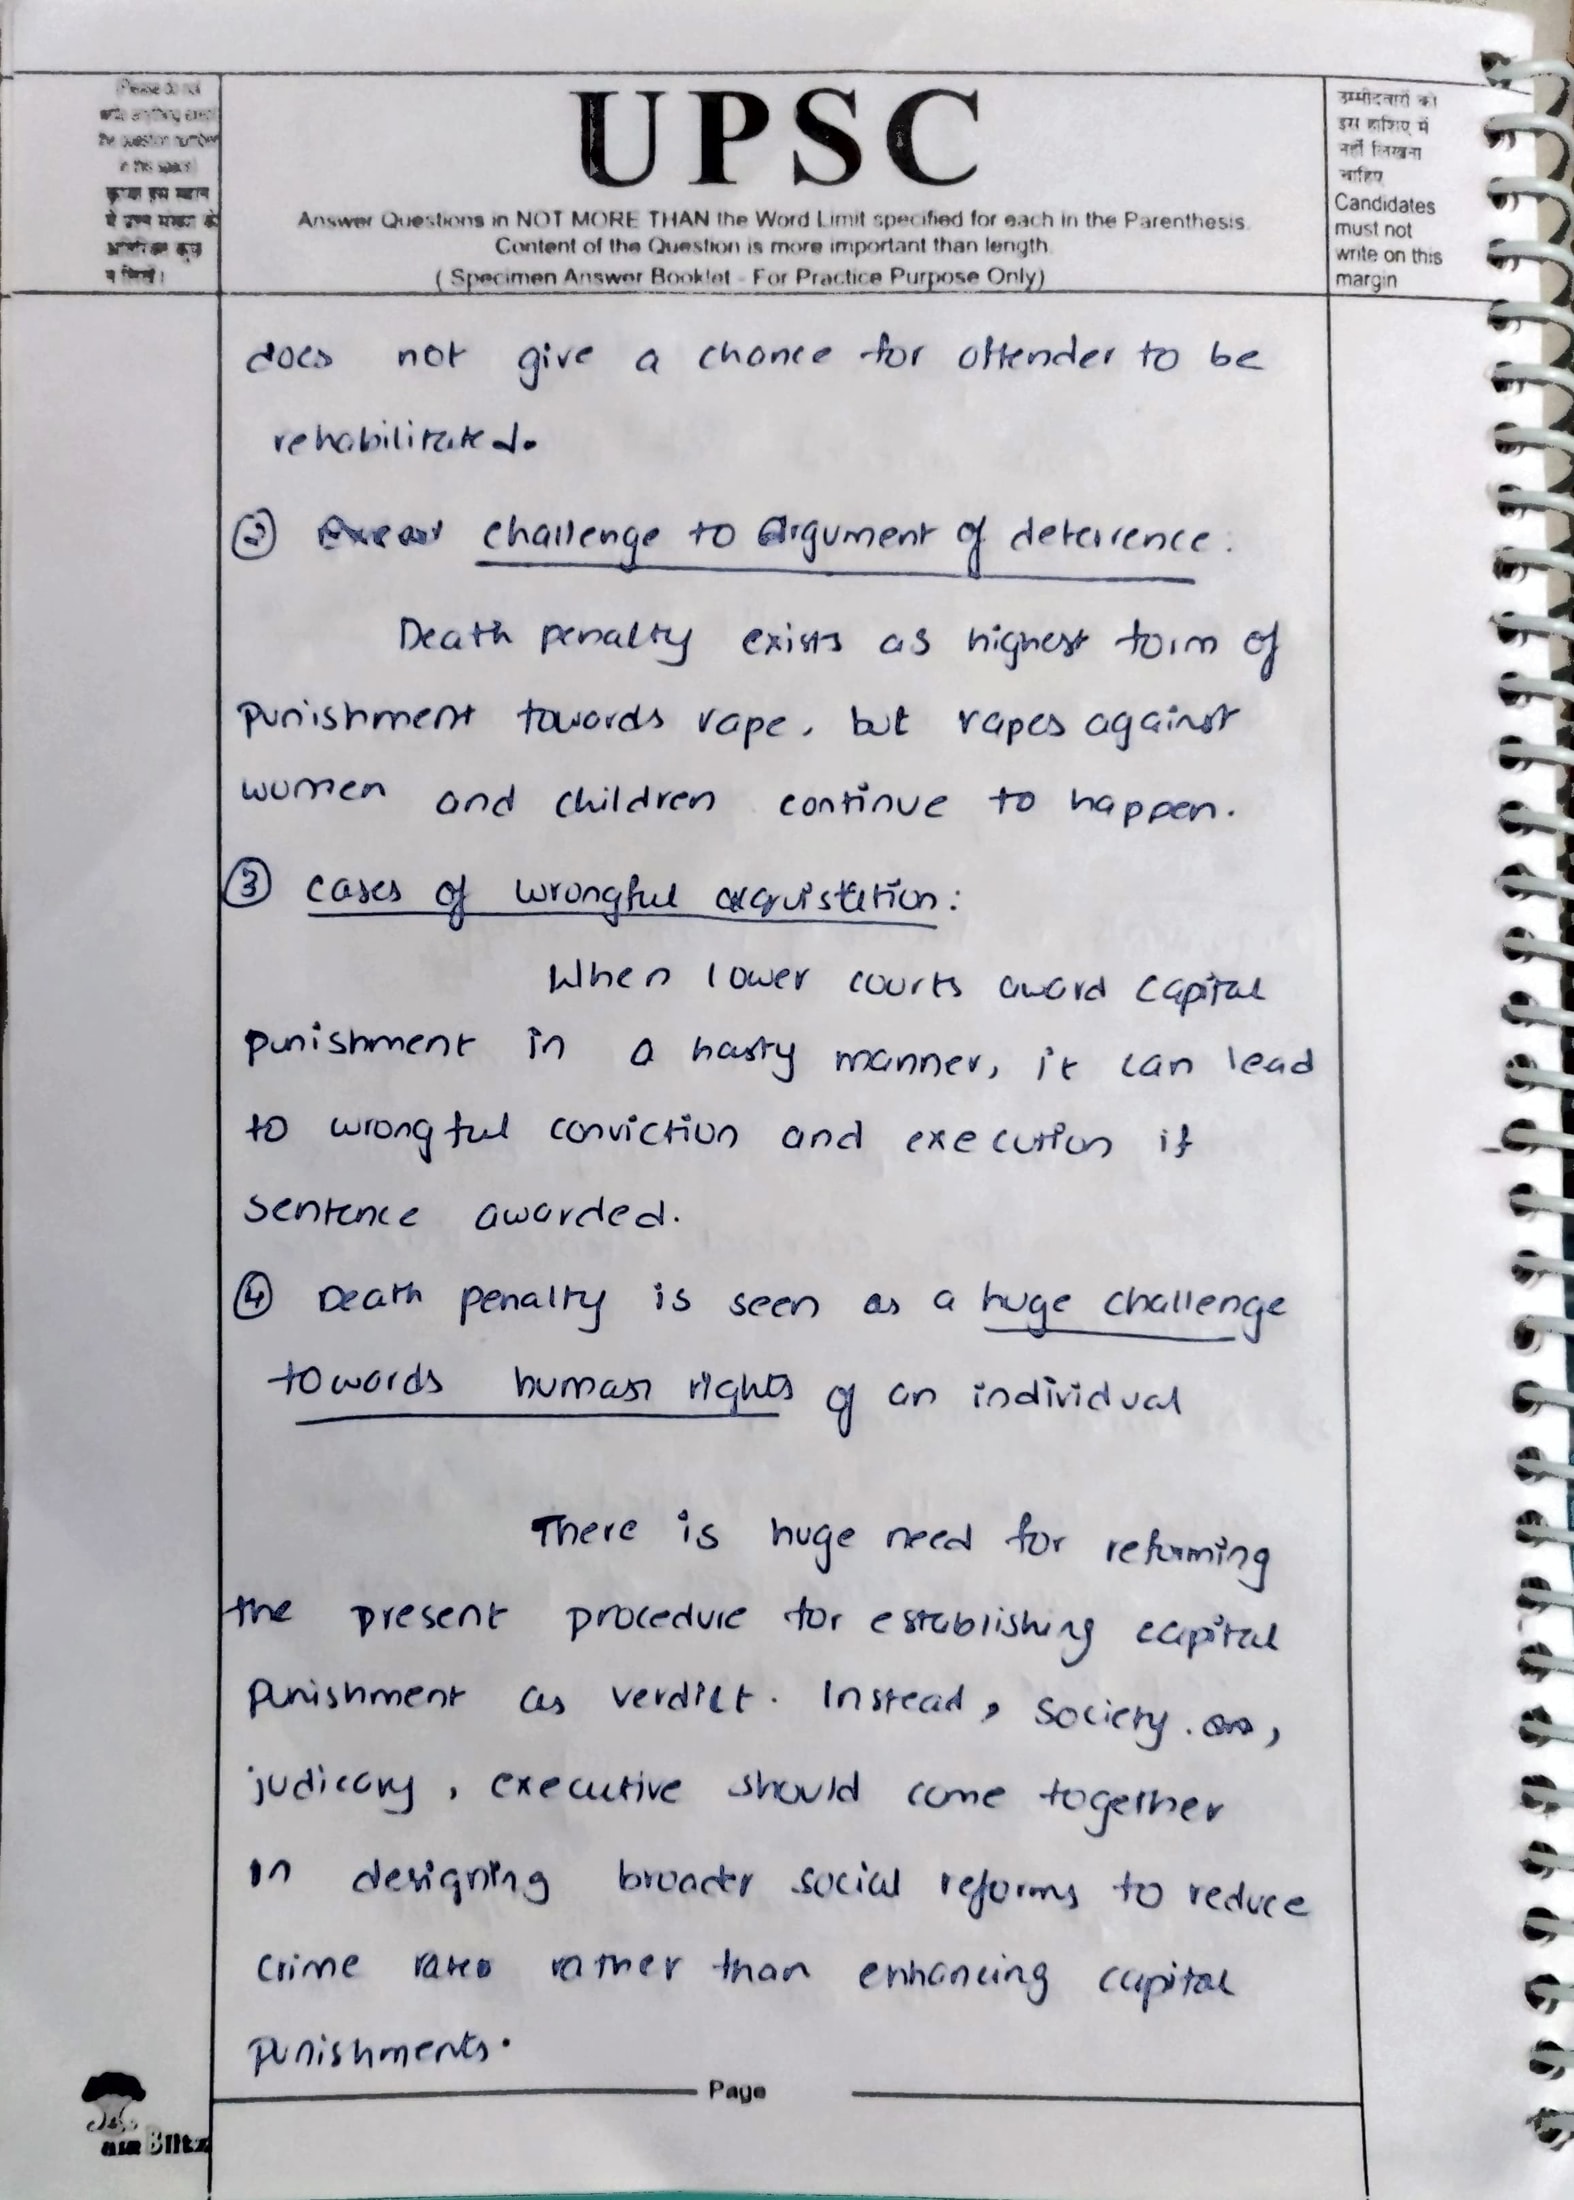 (Please do not
write anything except
the question number
in this space)
कृपया इस स्थान
में प्रश्न संख्या के
अतिरिक्त कुछ
न लिखें।
UPSC
Answer Questions in NOT MORE THAN the Word Limit specified for each in the Parenthesis.
Content of the Question is more important than length.
( Specimen Answer Booklet - For Practice Purpose Only)
उम्मीदवारों को
इस हाशिए में
नहीं लिखना
चाहिए
Candidates
must not
write on this
margin
does not give a chance for offender to be
rehabilitated.
② challenge to Argument of deterrence:
Death penalty exists as highest form of
punishment towards rape, but rapes against
women and children continue to happen.
③ cases of wrongful :
When lower courts award capital
punishment in a hasty manner, it can lead
to wrongful conviction and execution if
sentence awarded.
④ Death penalty is seen as a huge challenge
towards human rights of an individual
There is huge need for reforming
the present procedure for establishing capital
punishment as verdict. Instead, society. ,
judicary, executive should come together
in designing broader social reforms to reduce
crime rates rather than enhancing capital
punishments.
Page
AIR Blitz